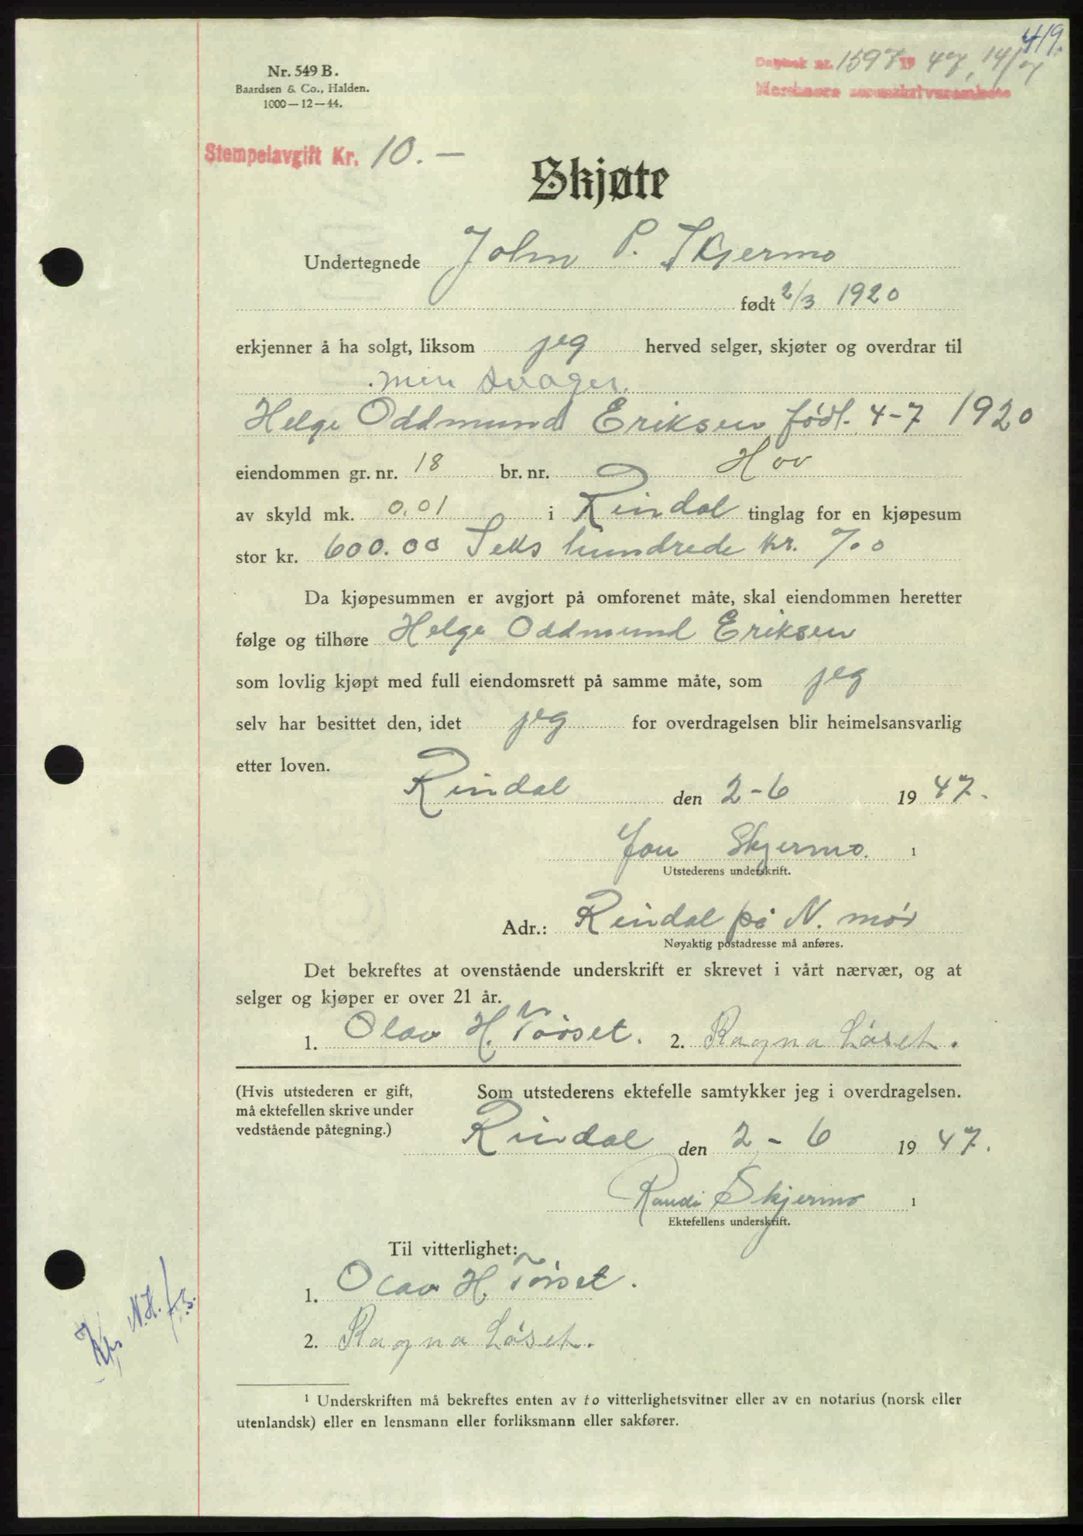 419.
Dagbok nr. 1597 19 47, 14/7
Nordmøre sorenskriverembete
Nr. 549 B.
Baardsen & Co., Halden.
1000—12—44.
Stempelavgift Kr. 10.—
Skjøte
Undertegnede John P. Skjermo
født 2/3 1920
erkjenner å ha solgt, liksom jeg herved selger, skjøter og overdrar til
min svoger.
Helge Oddmund Eriksen født. 4-7 1920
eiendommen gr. nr. 18 br. nr. Hov
av skyld mk. 0.01 i Rindal tinglag for en kjøpesum
stor kr. 600.00 Seks hundrede kr. %00
Da kjøpesummen er avgjort på omforenet måte, skal eiendommen heretter
følge og tilhøre Helge Oddmund Eriksen
som lovlig kjøpt med full eiendomsrett på samme måte, som jeg
selv har besittet den, idet jeg for overdragelsen blir heimelsansvarlig
etter loven.
Rindal den 2-6 1947.
Jon Skjermo. 1
Utstederens underskrift.
Adr.: Rindal på N. mør
Nøyaktig postadresse må anføres.
Det bekreftes at ovenstående underskrift er skrevet i vårt nærvær, og at
selger og kjøper er over 21 år.
1. Olav H. Tørset. 2. Ragna Løset.
(Hvis utstederen er gift, Som utstederens ektefelle samtykker jeg i overdragelsen.
må ektefellen skrive under
vedstående påtegning.)
Rindal den 2 - 6 1947.
Randi Skjermo 1
Ektefellens underskrift.
Til vitterlighet:
1. Olav H. Tørset.
2. Ragna Løset.
1 Underskriften må bekreftes enten av to vitterlighetsvitner eller av en notarius (norsk eller
utenlandsk) eller en lensmann eller forliksmann eller sakfører.